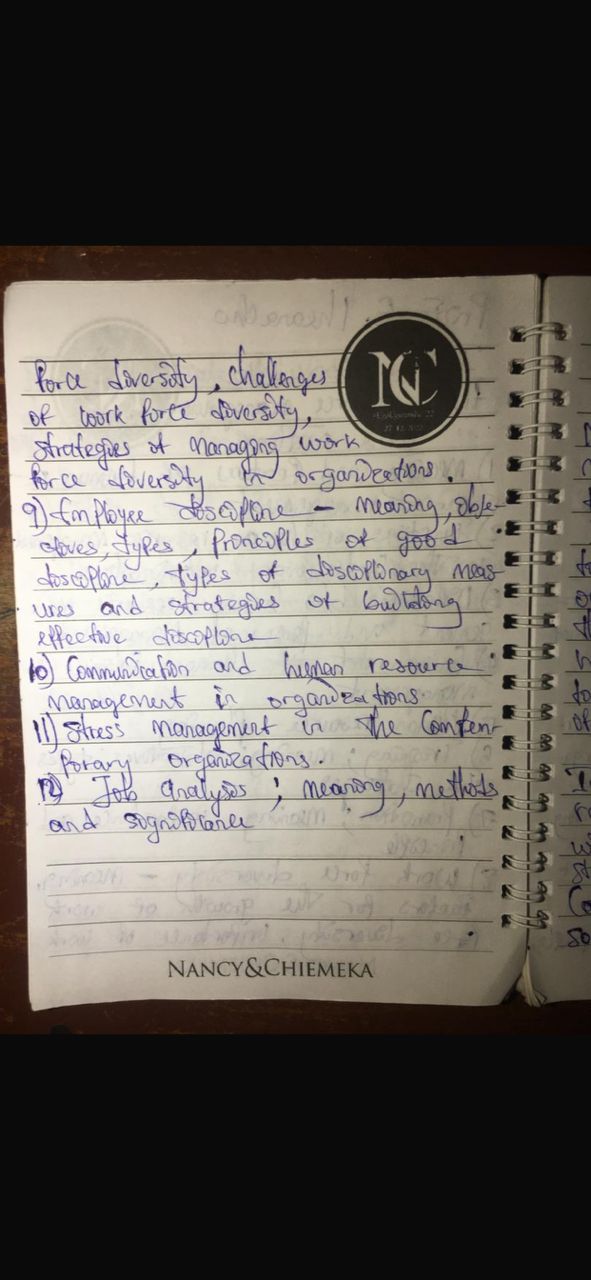 force diversity, challenges
of work force diversity,
strategies of managing work
force diversity in organizations.
9) Employee discipline - meaning, obje-
ctives, types, principles of good
discipline, types of disciplinary meas-
ures and strategies of building
effective discipline
10) Communication and human resource
management in organizations.
11) Stress management in the Contem-
porary organizations.
12) Job analysis; meaning, methods
and significance
NC
NANCY&CHIEMEKA